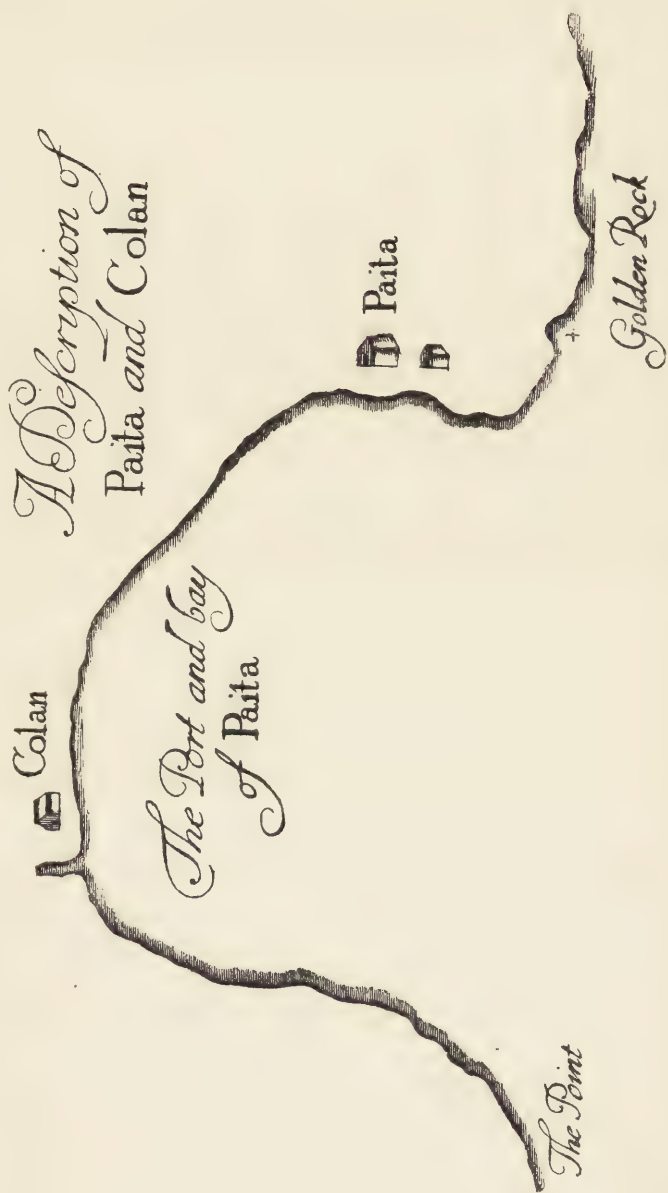 A Deſcription of
Paita and Colan
Colan
The Port and bay
of Paita
Paita
The Point
Golden Rock